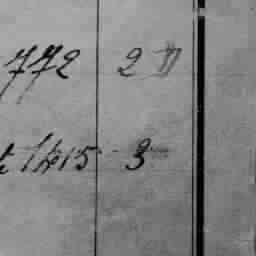 772 2
1415 3